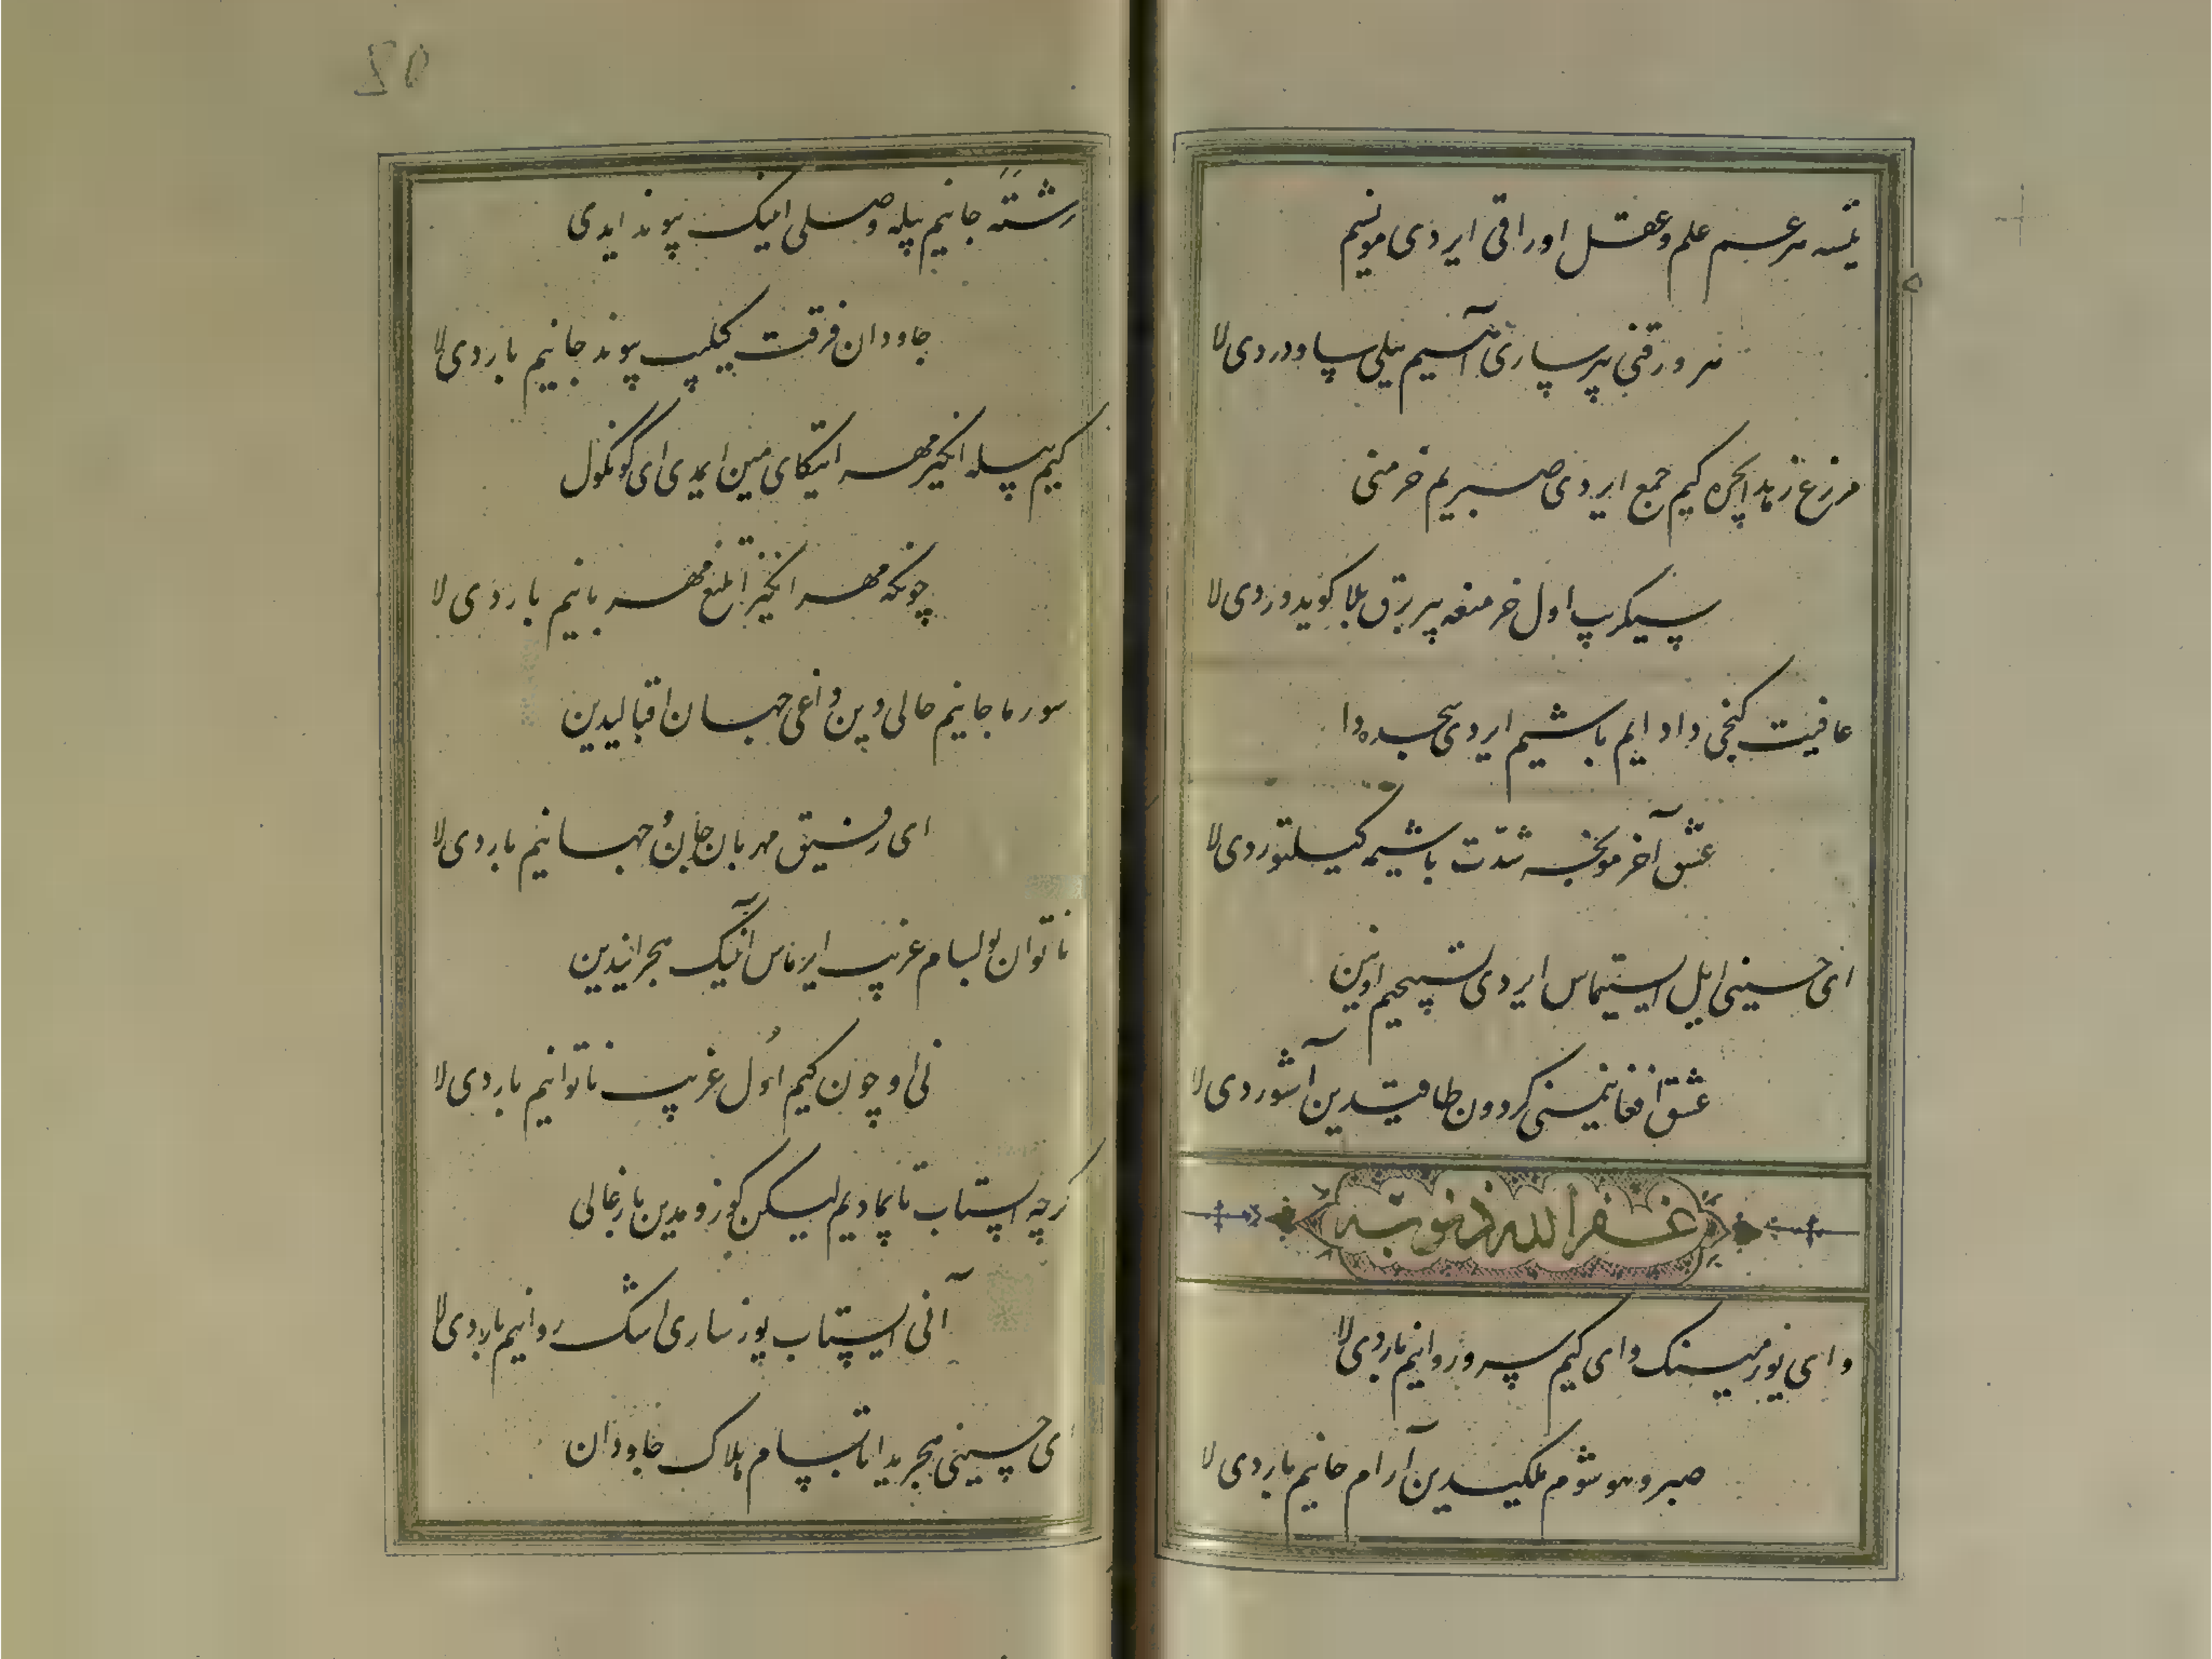 نیسه هر غم علم و عقل اوراقی ایردی مونسیم
هر ورقنی بیر ساری آهیم ییلی ساووردی لا
مزرع زهد ایچره کیم جمع ایردی صبریم خرمنی
سیکریب اول خرمنغه بیر برق بلا کویدوردی لا
عافیت کنجی دا دایم باشیم ایردی سجده دا
عشق آخر مونجه شدت باشیمه کیلتوردی لا
ای حسینی ایل ایشیتماس ایردی تسبیحیم اونین
عشق افغانیمنی کردون طاقیدین آشوردی لا
غفر الله ذنوبه
وای یوز مینک وای کیم سرو روانیم باردی لا
صبر و هوشوم ملکیدین آرام جانیم باردی لا
80
رشته جانیم بیله وصلی انینک پیوند ایدی
جاودان فرقت چیکیب پیوند جانیم باردی لا
کیم بیله انکیز مهر ایتکای مین ایمدی ای کونکول
چونکه مهر انکیز مهربانیم باردی لا
سورما جانیم حالی دین داغی جهان اقبالیدین
ای رفیق مهربان جان و جهانیم باردی لا
ناتوان بولسام غریب ایرماس انینک هجرانیدین
نی اوچون کیم اول غریب ناتوانیم باردی لا
کرچه ایستاب تاپمادیم لیکن کوزومدین بارغالی
آنی ایستاب یوز ساری اشک روانیم باردی لا
ای حسینی هجریدا تاپسام هلاک جاودان